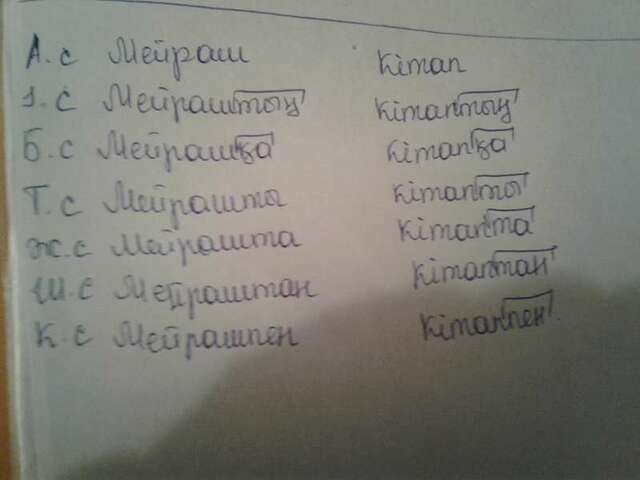 А. с Мейраш Кітап
І. с Мейраштың Кітаптың
Б. с Мейрашқа Кітапқа
Т. с Мейрашты Кітапты
Ж. с Мейрашта Кітапта
Ш. с Мейраштан Кітаптан
К. с Мейрашпен Кітаппен